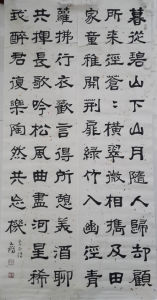 暮從碧山下山月隨人歸卻顧
所來徑蒼〻橫翠微相攜及田
家童稚開荊扉綠竹入幽徑青
蘿拂行衣歡言得所憩美酒聊
共揮長歌吟松風曲盡河星稀
我醉君復樂陶然共忘機
李白詩